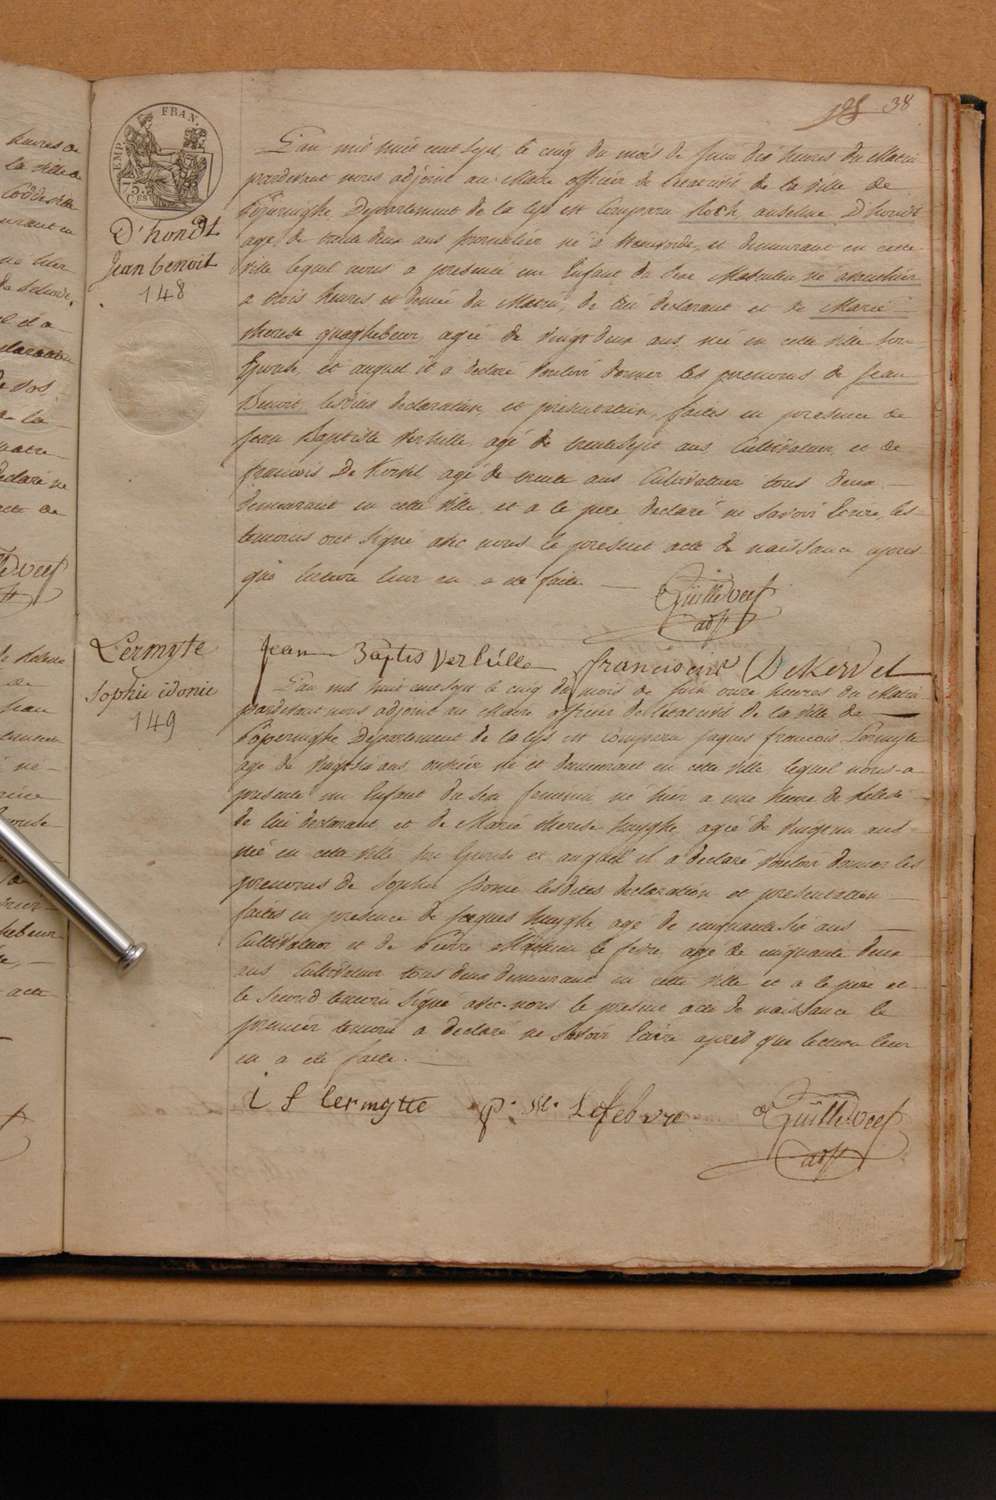 38
EMP. FRAN.
75 Ces
D'hondt
Jean benoit
148
L'an mil huit cent sept, le cinq du mois de Juin dix heures du Matin
pardevant nous adjoint au Maire officier de l'état civil de la ville de
Poperinghe Departement de la Lys est Comparu Roch anselme D'hondt
agé de trente deux ans journalier né à et demeurant en cette
ville lequel nous a presenté un Enfant du Sexe Masculin né
a trois heures et demie du Matin, de lui declarant et de Marie
therese quaghebeur agée de vingt deux ans née en cette ville son
Epouse, et auquel il a declaré vouloir donner les prenoms de Jean
Benoit, lesdites declaration et presentation faites en presence de
Jean Baptiste Verhille agé de trentesept ans Cultivateur et de
francois De Kervel agé de trente ans Cultivateur tous deux
demeurant en cette ville et a le pere declaré ne savoir Ecrire, les
temoins ont signé avec nous le present acte de naissance apres
que lecture leur en a été faite
Jean Baptis Verhille francis DeKervel
adjt
Lermyte
Sophie idonie
149
L'an mil huit cent sept le cinq du mois de Juin onze heures du Matin
pardevant nous adjoint au Maire officier de l'état civil de la ville de
Poperinghe Departement de la Lys est comparu Jaques francois Lermyte
agé de vingt six ans ouvrier né et demeurant en cette ville lequel nous a
presenté un Enfant du sexe feminin né hier a une heure de relevée
de lui declarant et de Marie therese huyghe agée de vingt un ans
née en cette ville son Epouse et auquel il a declaré vouloir donner les
prenoms de Sophie Idonie lesdites declaration et presentation
faites en presence de Jaques huyghe agé de cinquante six ans
Cultivateur et de Pierre le febvre agé de cinquante deux
ans Cultivateur tous deux demeurant en cette ville et a le pere et
le second temoin signé avec nous le present acte de naissance le
premier temoin a declaré ne savoir Ecrire après que lecture leur
en a été faite.
i f lermytte p. M. Lefebvre
adjt